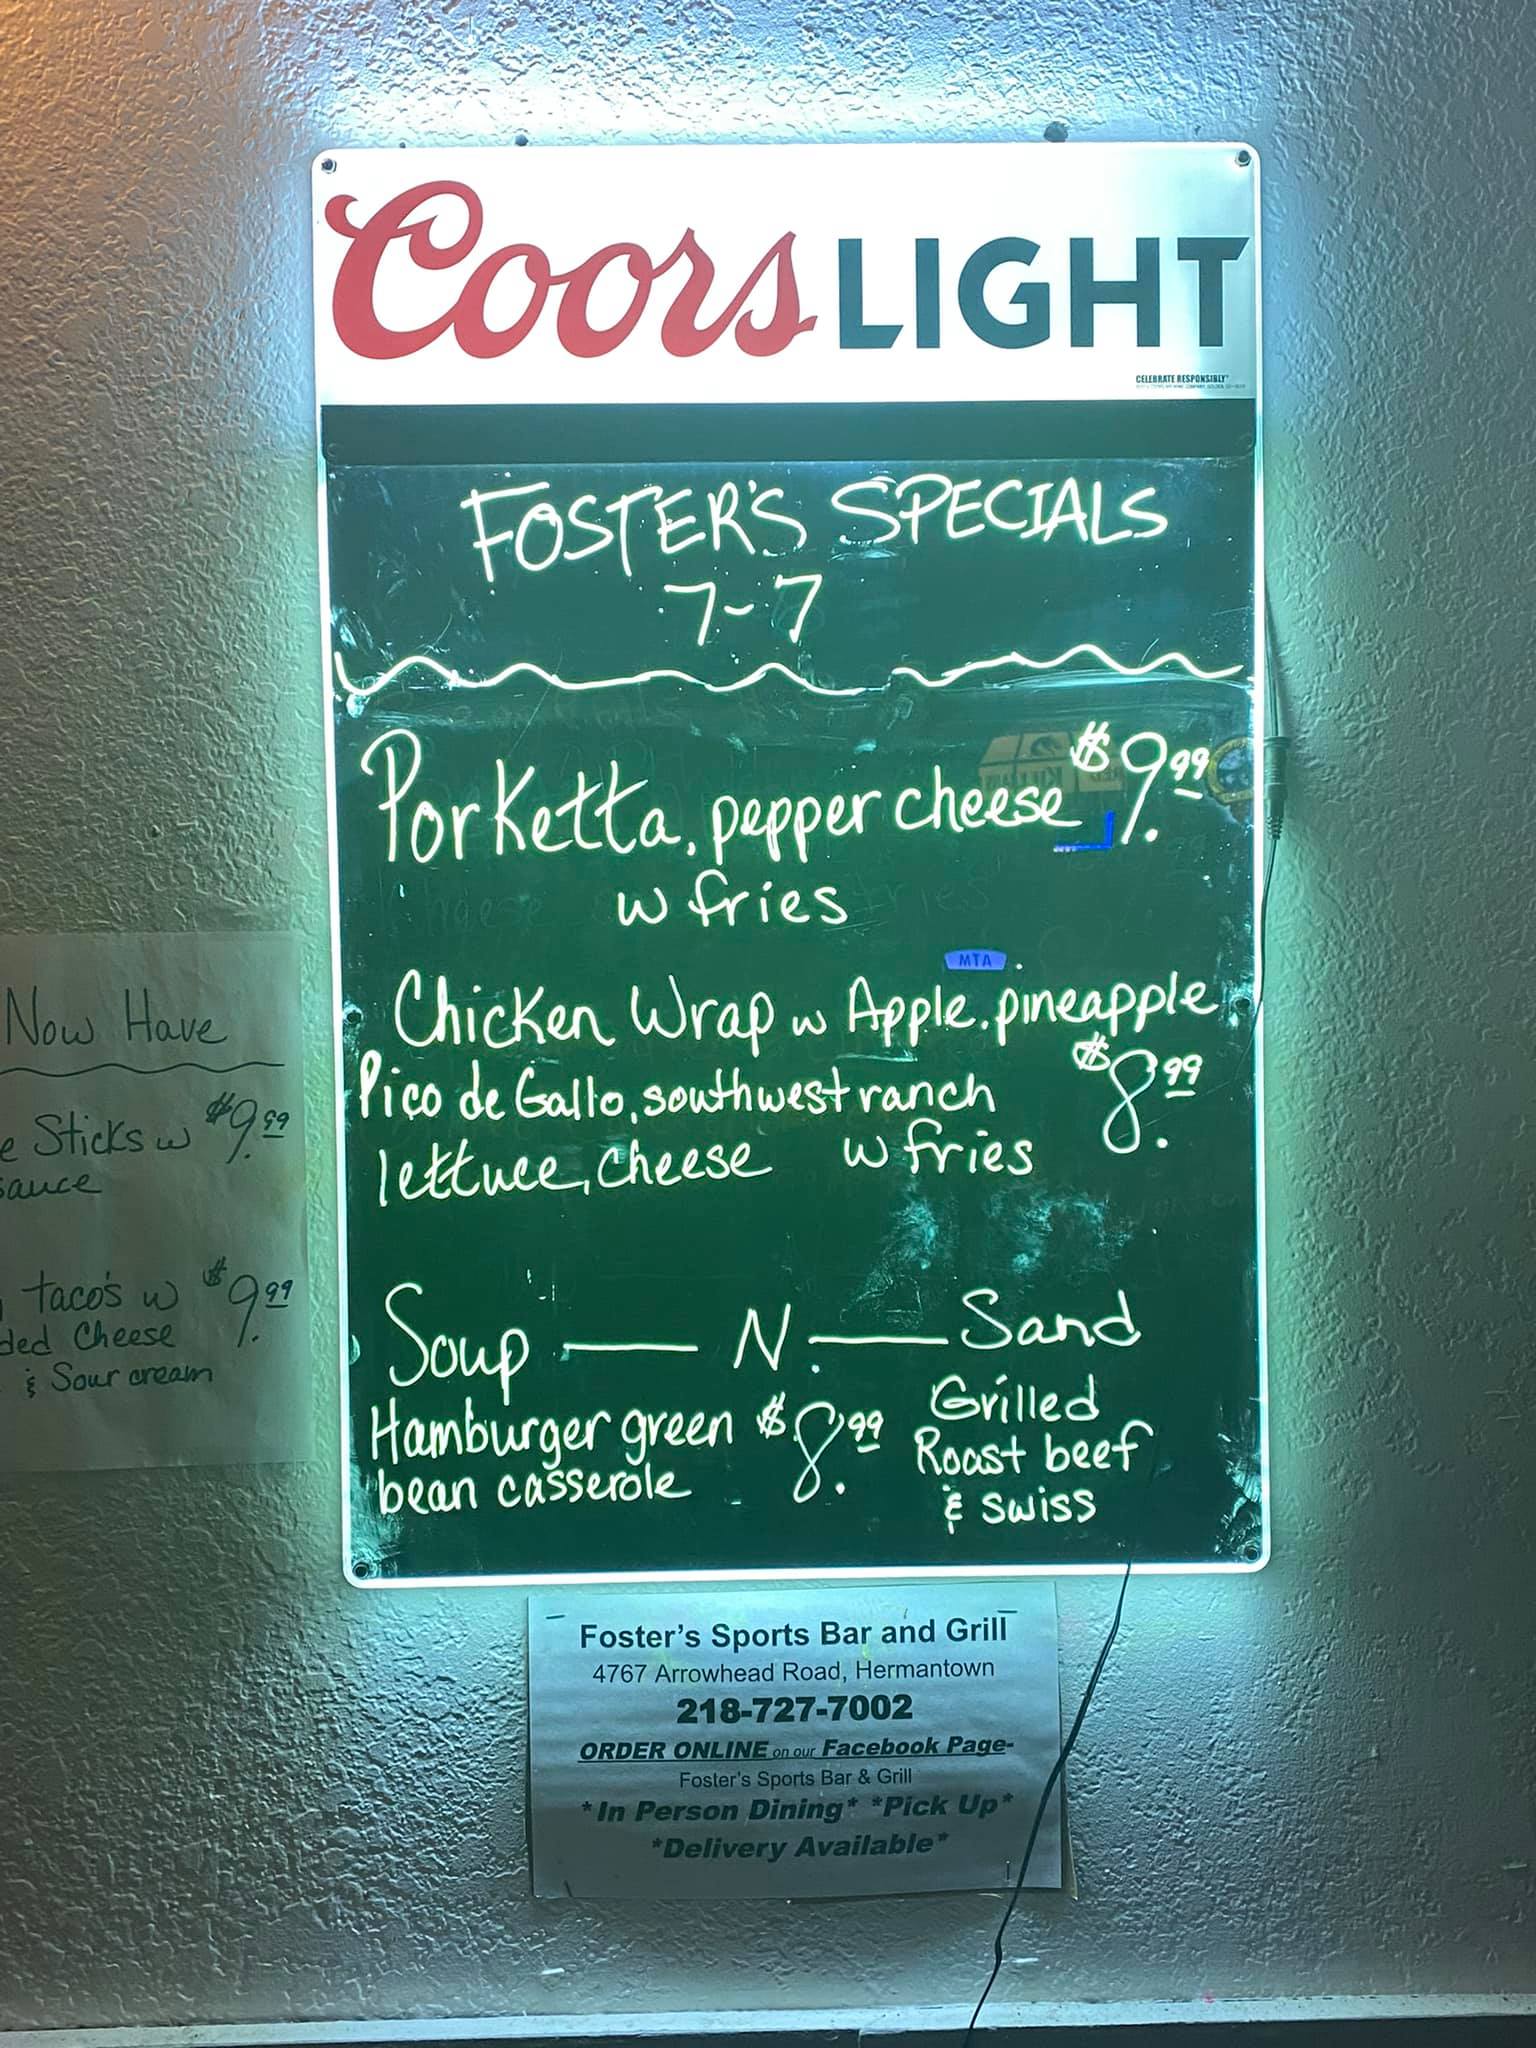 Coors LIGHT
CELEBRATE RESPONSIBLY
FOSTER'S SPECIALS
7-7
Porketta, pepper cheese $9.99
w fries
MTA
Chicken Wrap w Apple, pineapple
Pico de Gallo, southwest ranch $8.99
lettuce, cheese w fries
Soup — N — Sand
Hamburger green $8.99 Grilled
bean casserole Roast beef
& swiss
Now Have
Sticks w $9.99
sauce
tacos w $9.99
Cheese
& Sour cream
Foster's Sports Bar and Grill
4767 Arrowhead Road, Hermantown
218-727-7002
ORDER ONLINE on our Facebook Page-
Foster's Sports Bar & Grill
*In Person Dining* *Pick Up*
*Delivery Available*